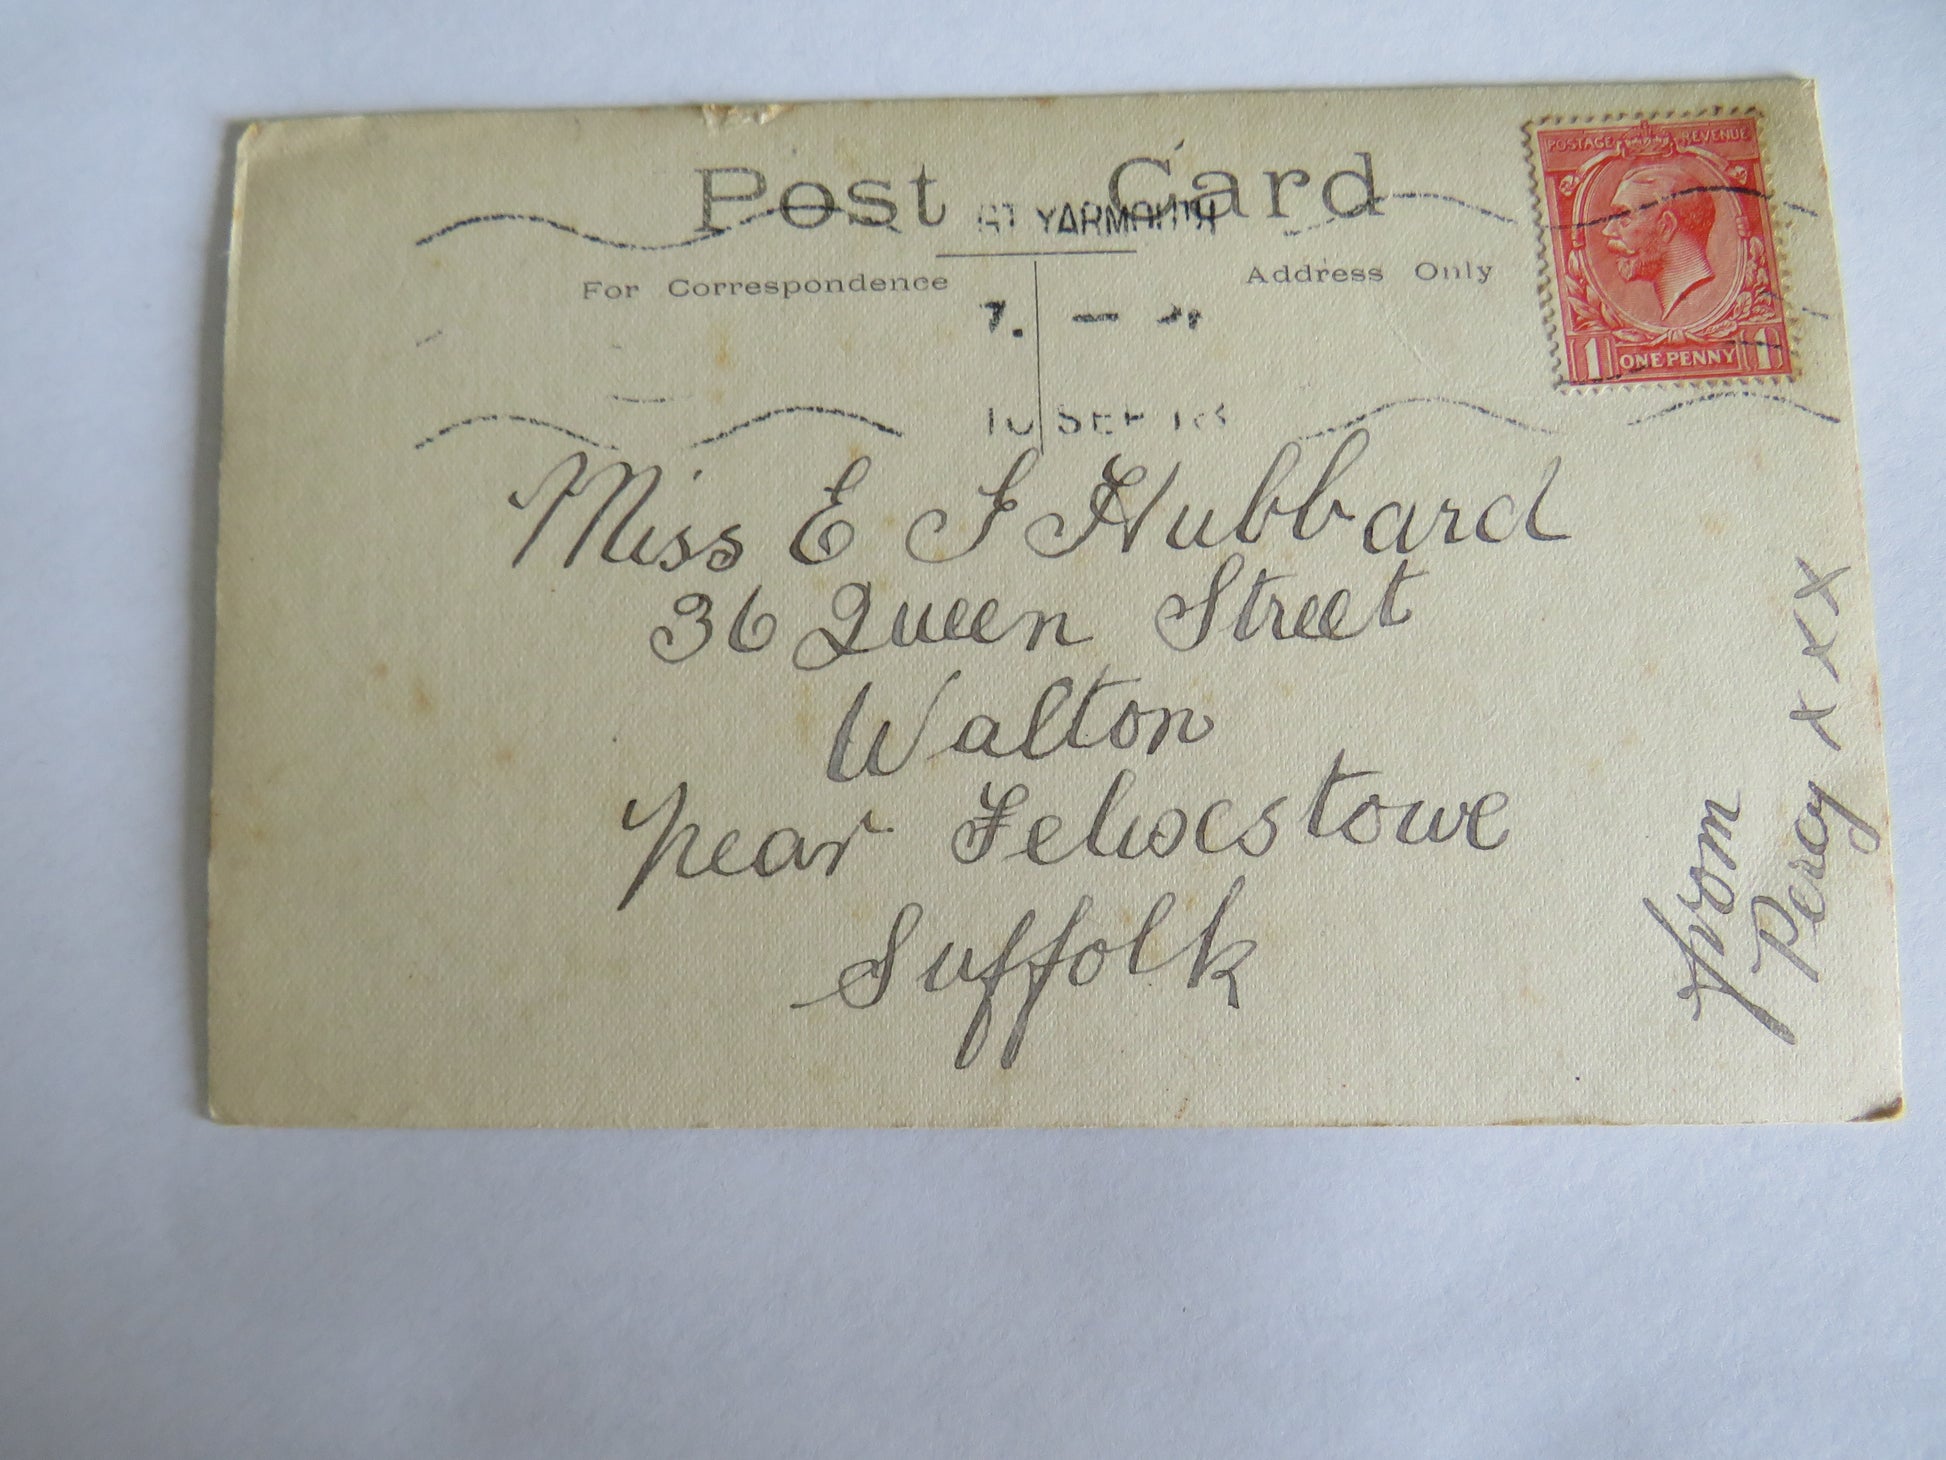 Post Card
GT YARMOUTH
For Correspondence
Address Only
POSTAGE REVENUE
1 ONE PENNY 1
7.
10 SEP 18
Miss E F Hubbard
36 Queen Street
Walton
near Felixstowe
Suffolk
from
Percy x x x